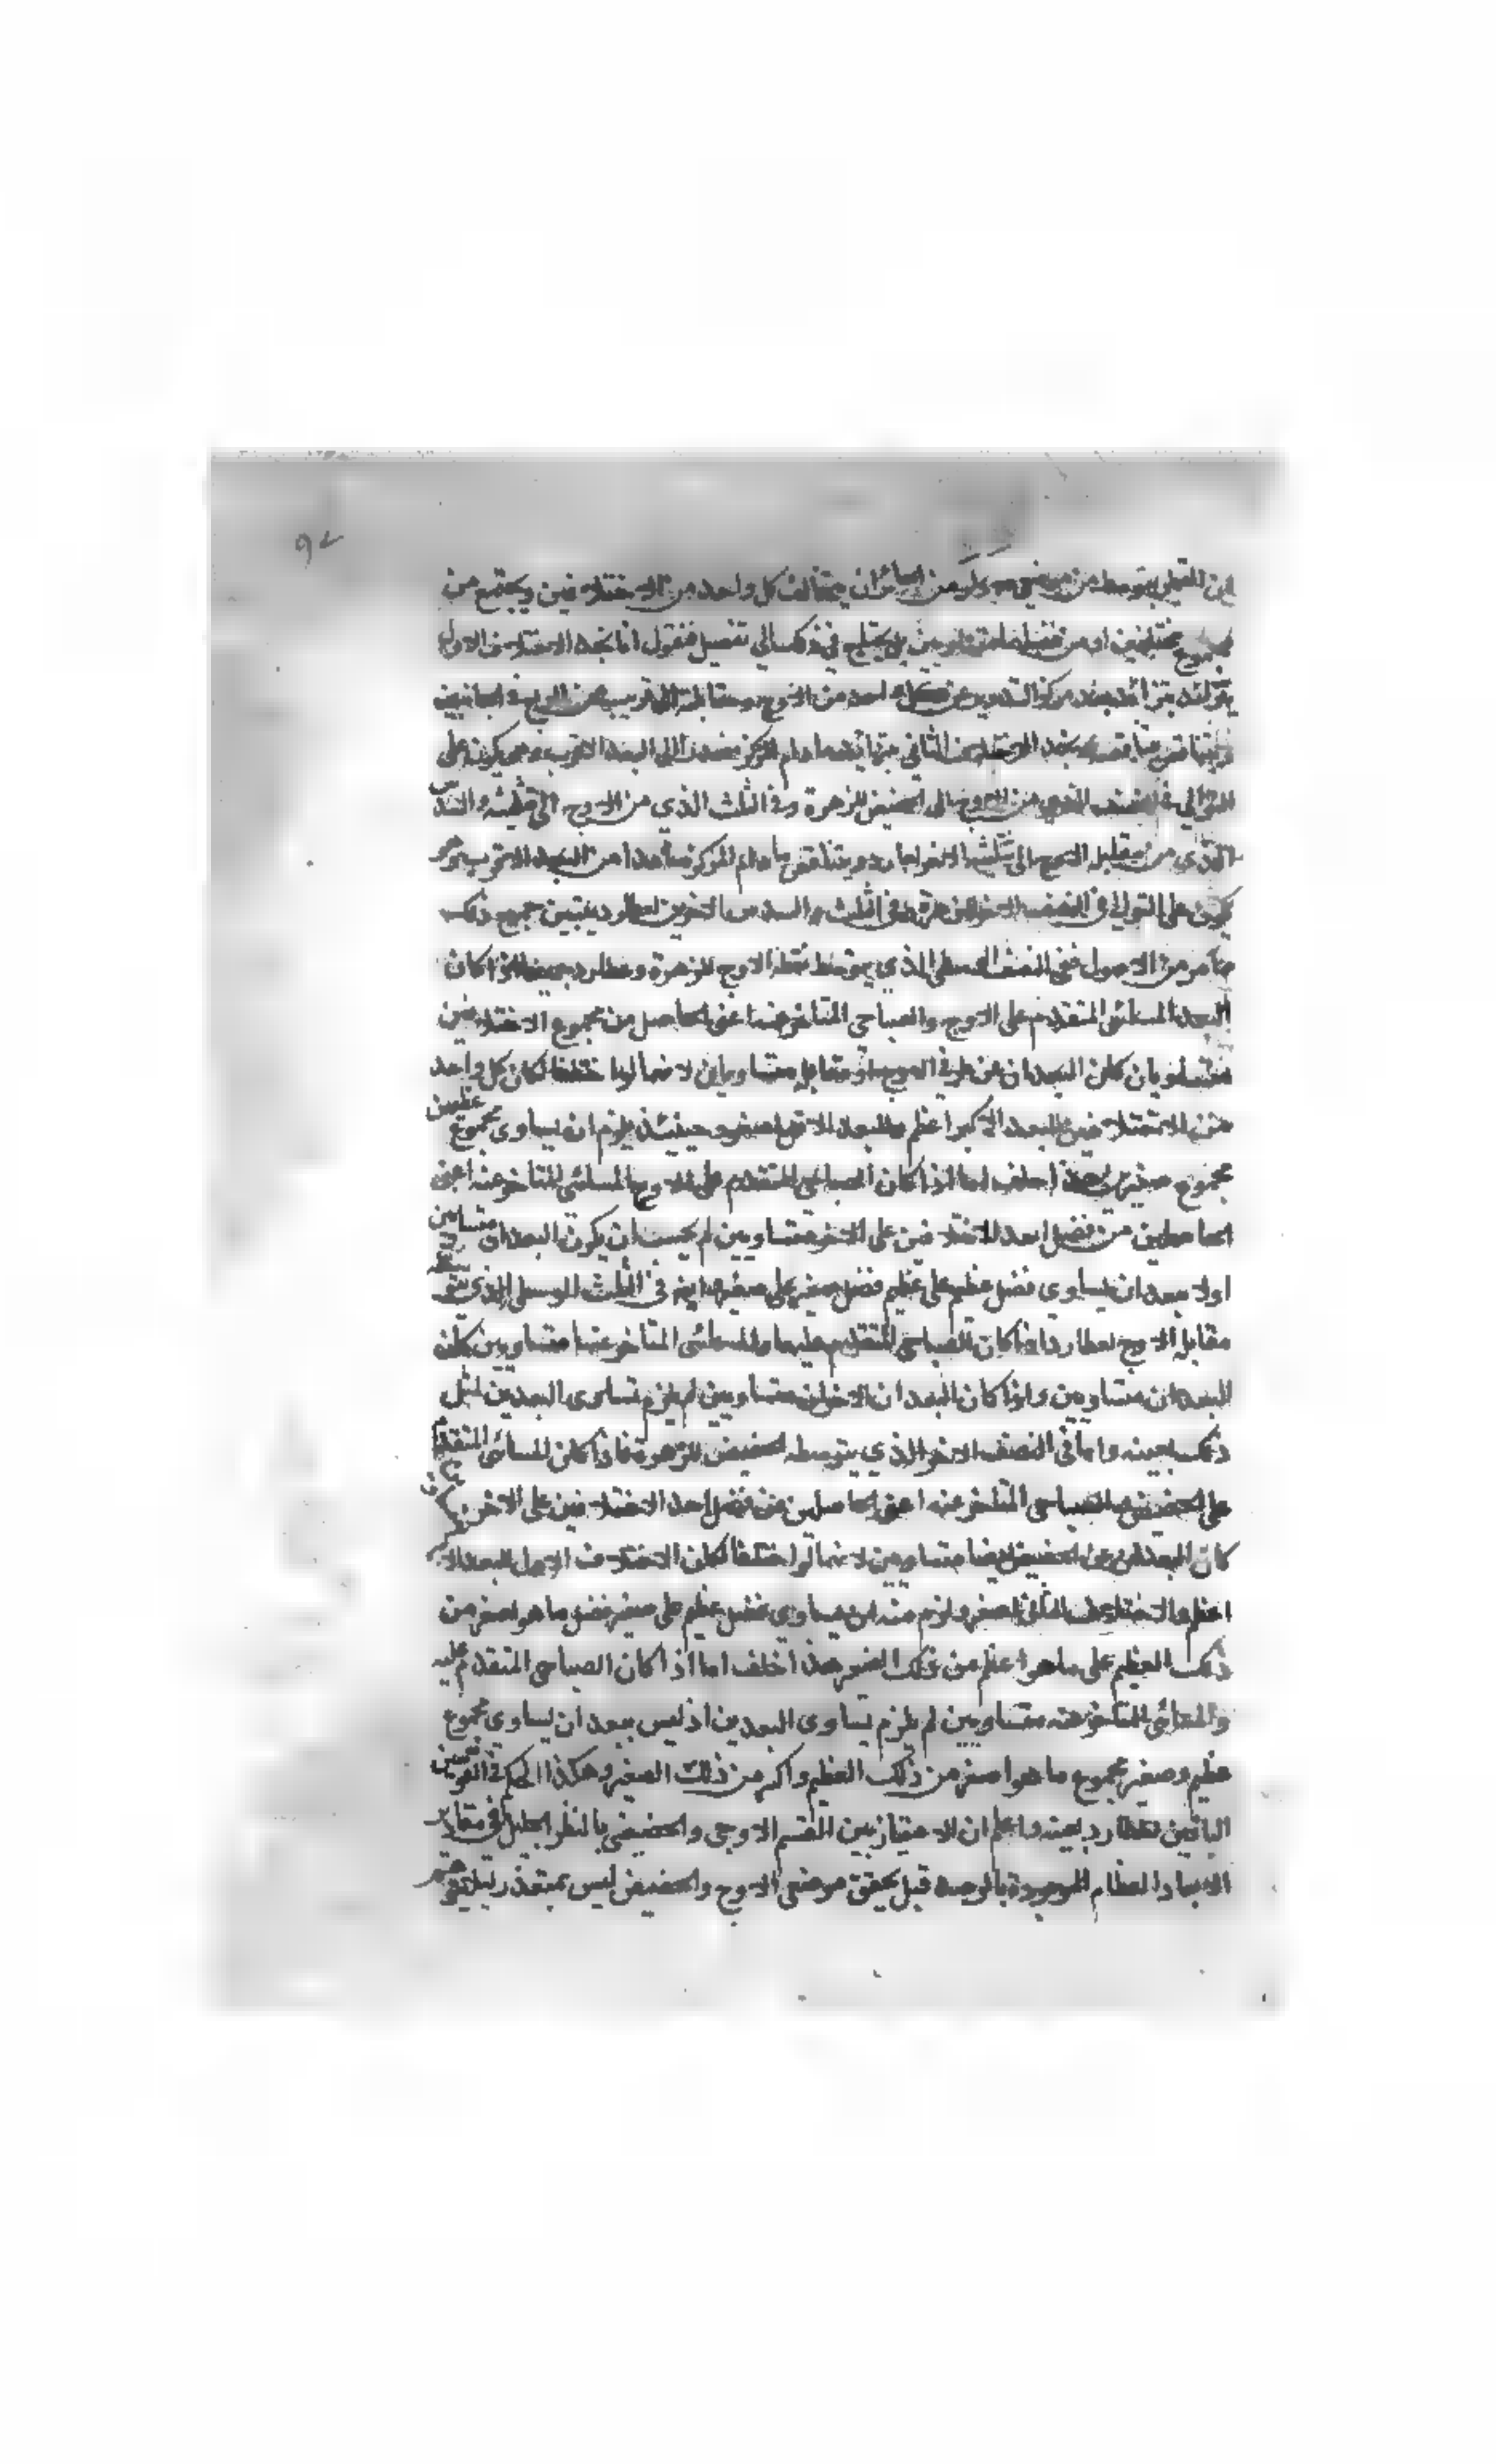 ٩٢
من الجائز ان يتخالف كل واحد من الاختلافين ويجتمع من
مجموع مختلفين او من متساويين بل يحتاج في ذلك الى تفصيل فنقول انا نجد الاختلاف الاول
يتزايد بتزائد بعد مركز التدوير عن كل واحد من الاوج ومقابلته الى قريب من الربع في الجانبين
الاختلاف الثاني متزائدا مادام المركز الى البعد الاقرب وهو يكون على
التوالي في النصف الذي من الاوج الى الحضيض للزهرة وفي الثلث الذي من الاوج الى والسدس
الذي من مقابل الاوج الى لعطارد ويتناقص مادام المركز من البعد الاقرب وهو
يكون على التوالي في النصف الاخر للزهرة وفي الثلث والسدس الاخرين لعطارد يتبين جميع ذلك
مما مر من الاصول ففي النصف الذي يتوسط نقطة الاوج للزهرة وعطارد جميعا اذا كان
البعد المسائي المتقدم على الاوج والصباحي المتاخر عنها اعني الحاصل من مجموع الاختلافين
متساويان كان البعدان عن طرفي الاوج او مقابله متساويين لانهما لو اختلفا لكان كل واحد
من الاختلافين للبعد الاكبر اعظم وللبعد الاقل اصغر وحينئذ يلزم ان يساوي مجموع عظمين
مجموع صغيرين هذا خلف اما اذا كان الصباحي المتقدم على الاوج والمسائي المتاخر عنه اعني
الحاصلين من فضل احد الاختلافين على الاخر متساويين لم يجب ان يكون البعدان متساويين
اولا بعد ان يساوي فضل عظيم على عظيم فضل صغير على صغير ايضا في الثلث الوسطى الذي
مقابلة الاوج لعطارد اذا كان الصباحي المتقدم عليها والمسائي المتاخر عنها متساويين كان
البعدان متساويين واذا كان البعدان الاخران متساويين لم يلزم تساوي البعدين لمثل
ذلك بعينه واما في النصف الاخر الذي يتوسطه الحضيض للزهرة فاذا كان المسائي المتقدم
على الحضيض والصباحي المتاخر عنه اعني الحاصلين من فضل احد الاختلافين على الاخر
كان البعدان عن الحضيض ايضا متساويين لانهما لو اختلفا لكان الاختلاف الاول للبعد
اعظم والاختلاف الثاني اصغر ولزم منه ان يساوي فضل عظيم على صغير فضل ما هو اصغر من
ذلك العظيم على ما هو اعظم من ذلك الصغير هذا خلف اما اذا كان الصباحي المتقدم عليه
والمسائي المتاخر عنه متساويين لم يلزم تساوي البعدين اذ ليس ببعد ان يساوي مجموع
عظيم وصغير مجموع ما هو اصغر من ذلك العظيم واكبر من ذلك الصغير وهكذا الحكم في القوسين
الباقيين لعطارد بعينه واعلم ان الامتياز بين القسم الاوجي والحضيضي بالنظر الجليل في مقادير
الابعاد العظام الموجودة بالرصد قبل تحقق موضعي الاوج والحضيض ليس بمتعذر